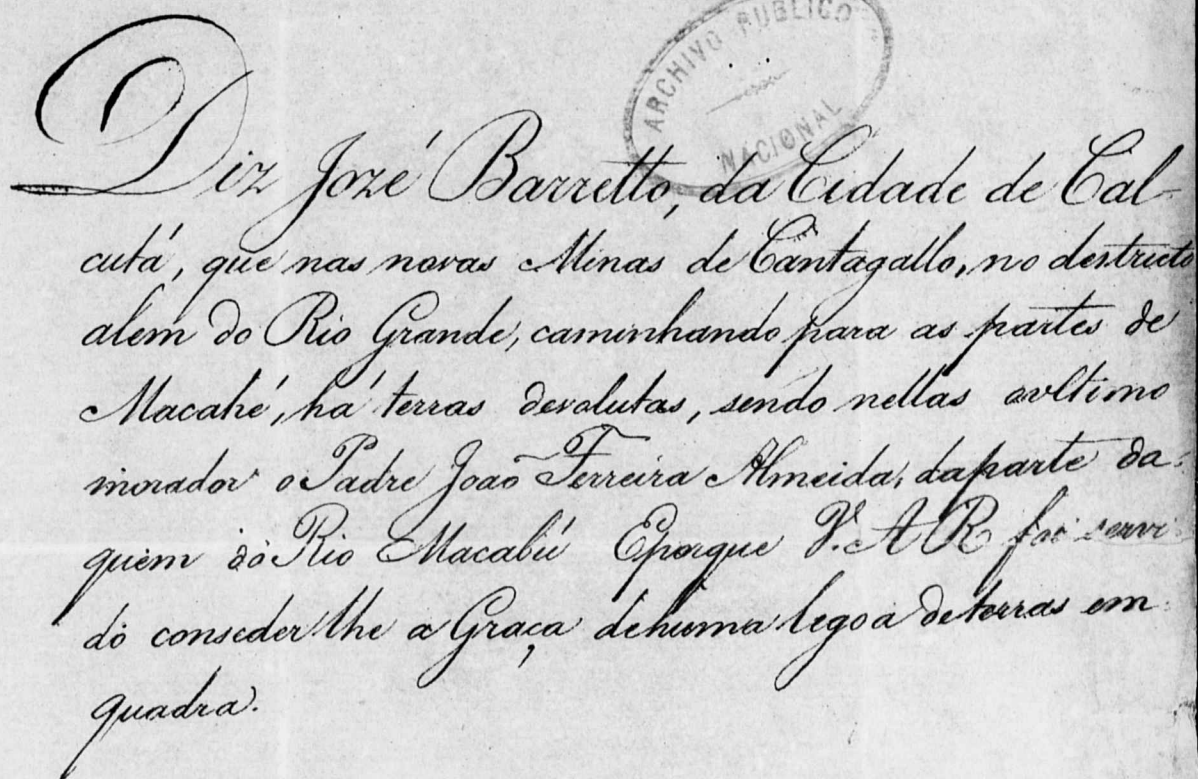 ARCHIVO PUBLICO
NACIONAL
Diz Jozé Barretto, da Cidade de Cal-
cutá, que nas novas Minas de Cantagallo, no destructo
alem do Rio Grande, caminhando para as partes de
Macahé, há terras devolutas, sendo nellas oultimo
morador o Padre João Ferreira Almeida, daparte da-
quem do Rio Macabú Eporque V. A R foi servi-
do conseder lhe a Graça dehuma legoa deterras em
quadra.